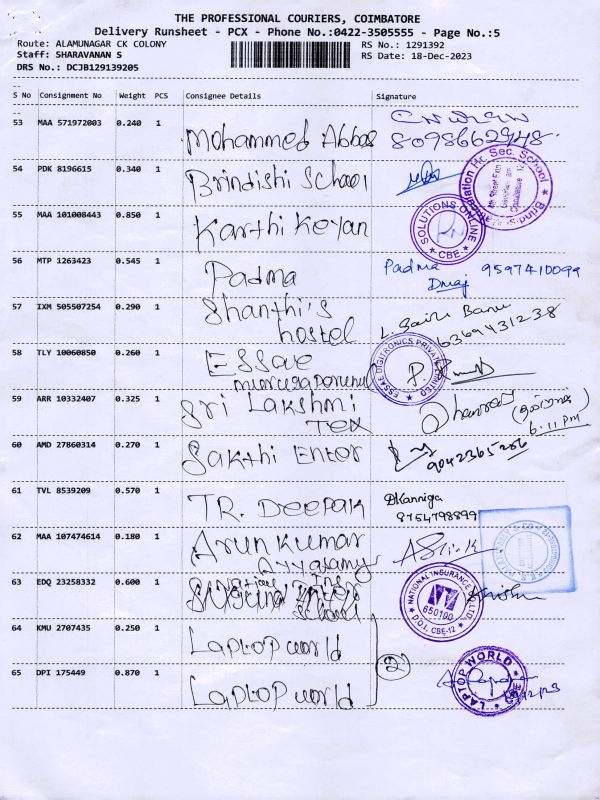 THE PROFESSIONAL COURIERS, COIMBATORE
Delivery Runsheet - PCX - Phone No.:0422-3505555 - Page No.:5
Route: ALAMUNAGAR CK COLONY RS No.: 1291392
Staff: SHARAVANAN S RS Date: 18-Dec-2023
DRS No.: DCJB129139205
S No Consignment No Weight PCS Consignee Details Signature
53 MAA 571972003 0.240 1 Mohammed Abbas 8098662948
54 PDK 8196615 0.340 1 Brindishi School
Hr. Sec. School
55 MAA 101008443 0.850 1 Karthi Keyan
SOLUTIONS ONLINE
* CBE *
56 MTP 1263423 0.545 1 Padma Padma 9597410099
57 IXM 505507254 0.290 1 Shanthi's
hostel
L. Banu
6369431238
58 TLY 10060850 0.260 1 ESSae
ESSAE DIGITRONICS PRIVATE LIMITED
59 ARR 10332407 0.325 1 Sri Lakshmi
Tex
6:11 PM
60 AMD 27860314 0.270 1 Sakthi Enter 9042365286
61 TVL 8539209 0.570 1 TR. Deepak DKanniga
8754798899
62 MAA 107474614 0.180 1 Arun Kumar
63 EDQ 23258332 0.600 1 School
NATIONAL INSURANCE
650100
D.O.I. CBE-12
64 KMU 2707435 0.250 1 Laptop world
2
65 DPI 175449 0.870 1 Laptop world
LAPTOP WORLD